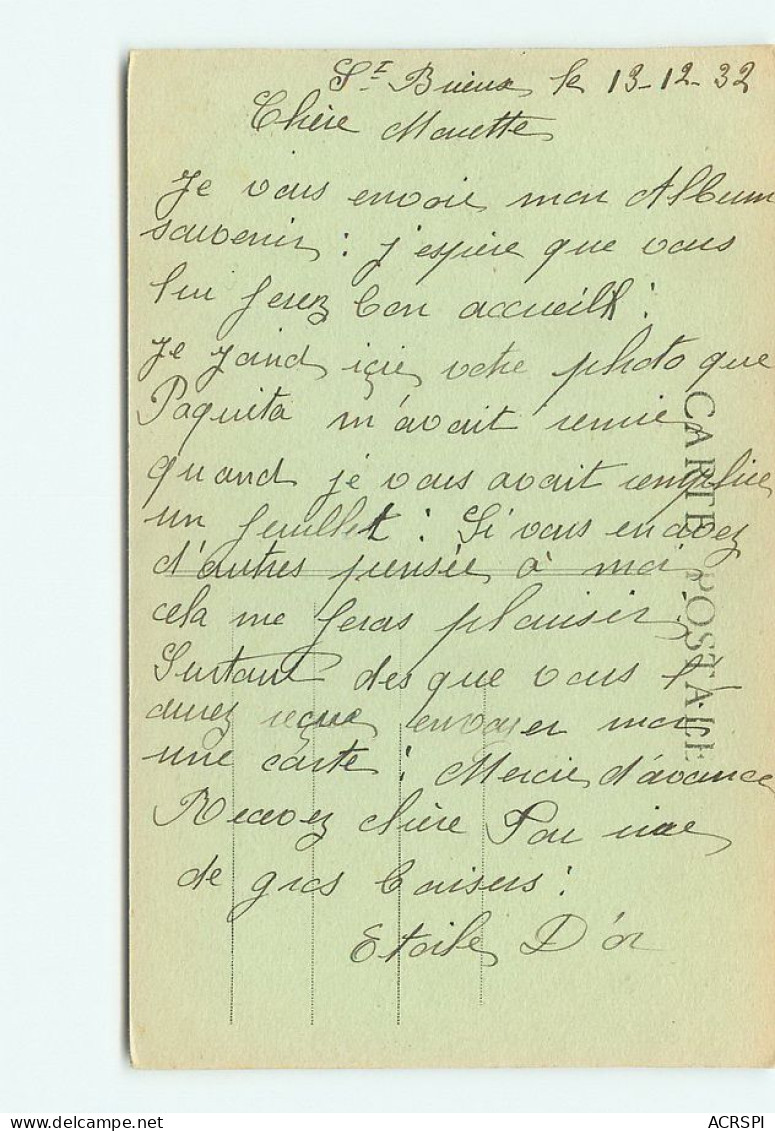 St Brieux le 13-12-32
Chère Mouette
Je vous envoie mon Album
souvenir : j'espère que vous
lui ferez bon accueill :
Je joind içie votre photo que
Paquita m'avait remie
quand je vous avait remplie
un feuillet : Si vous en avez
d'autres pensée à moi
cela me feras plaisir
Surtout des que vous l'
aurez reçue envoyer moi
une carte : Mercie d'avance
Recevez chère
de gros baisers :
Etoile D'or
CARTE POSTALE
ACRSPI